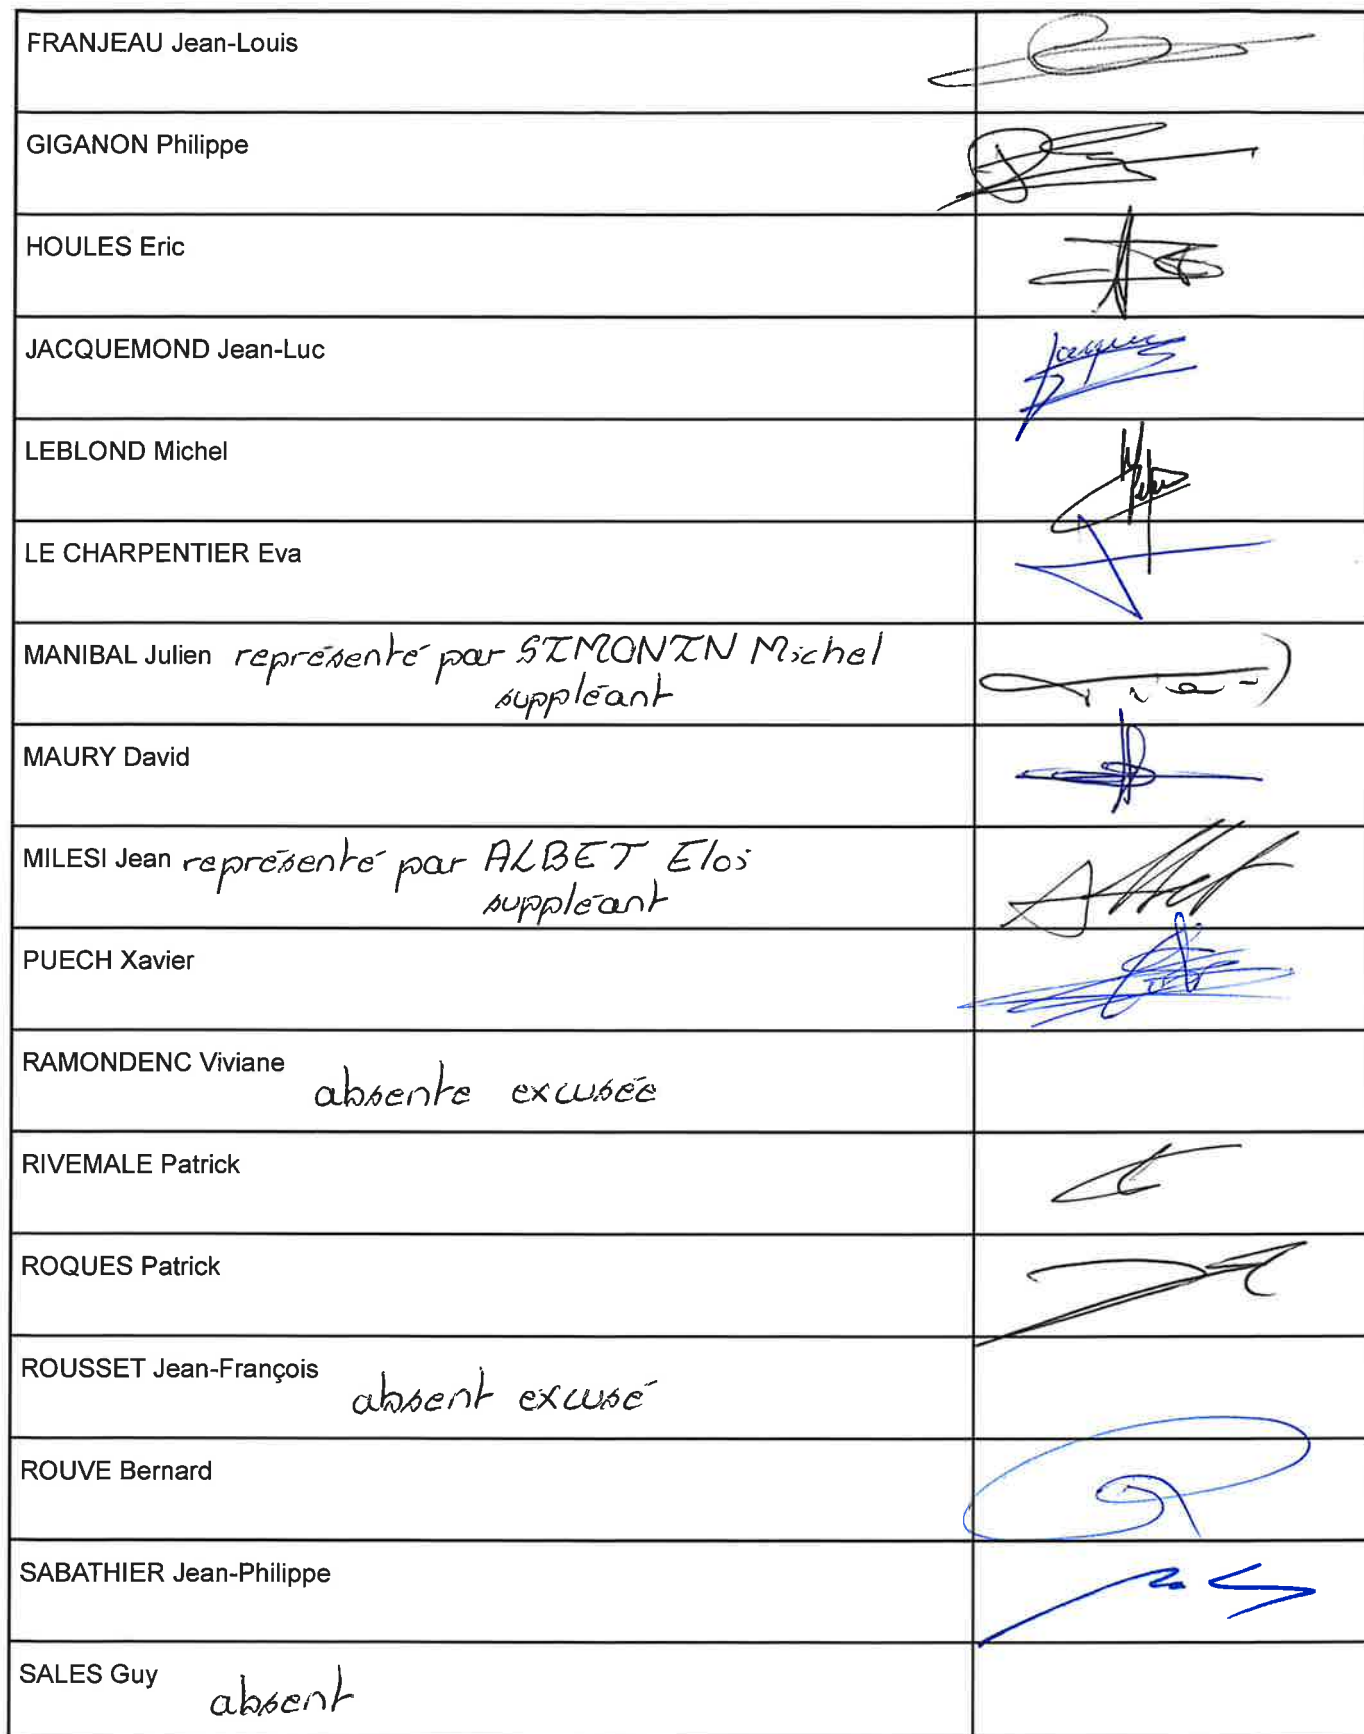 FRANJEAU Jean-Louis
GIGANON Philippe
HOULES Eric
JACQUEMOND Jean-Luc
LEBLOND Michel
LE CHARPENTIER Eva
MANIBAL Julien représenté par SIMONIN Michel
suppléant
MAURY David
MILESI Jean représenté par ALBET Eloi
suppléant
PUECH Xavier
RAMONDENC Viviane
absente excusée
RIVEMALE Patrick
ROQUES Patrick
ROUSSET Jean-François
absent excusé
ROUVE Bernard
SABATHIER Jean-Philippe
SALES Guy
absent